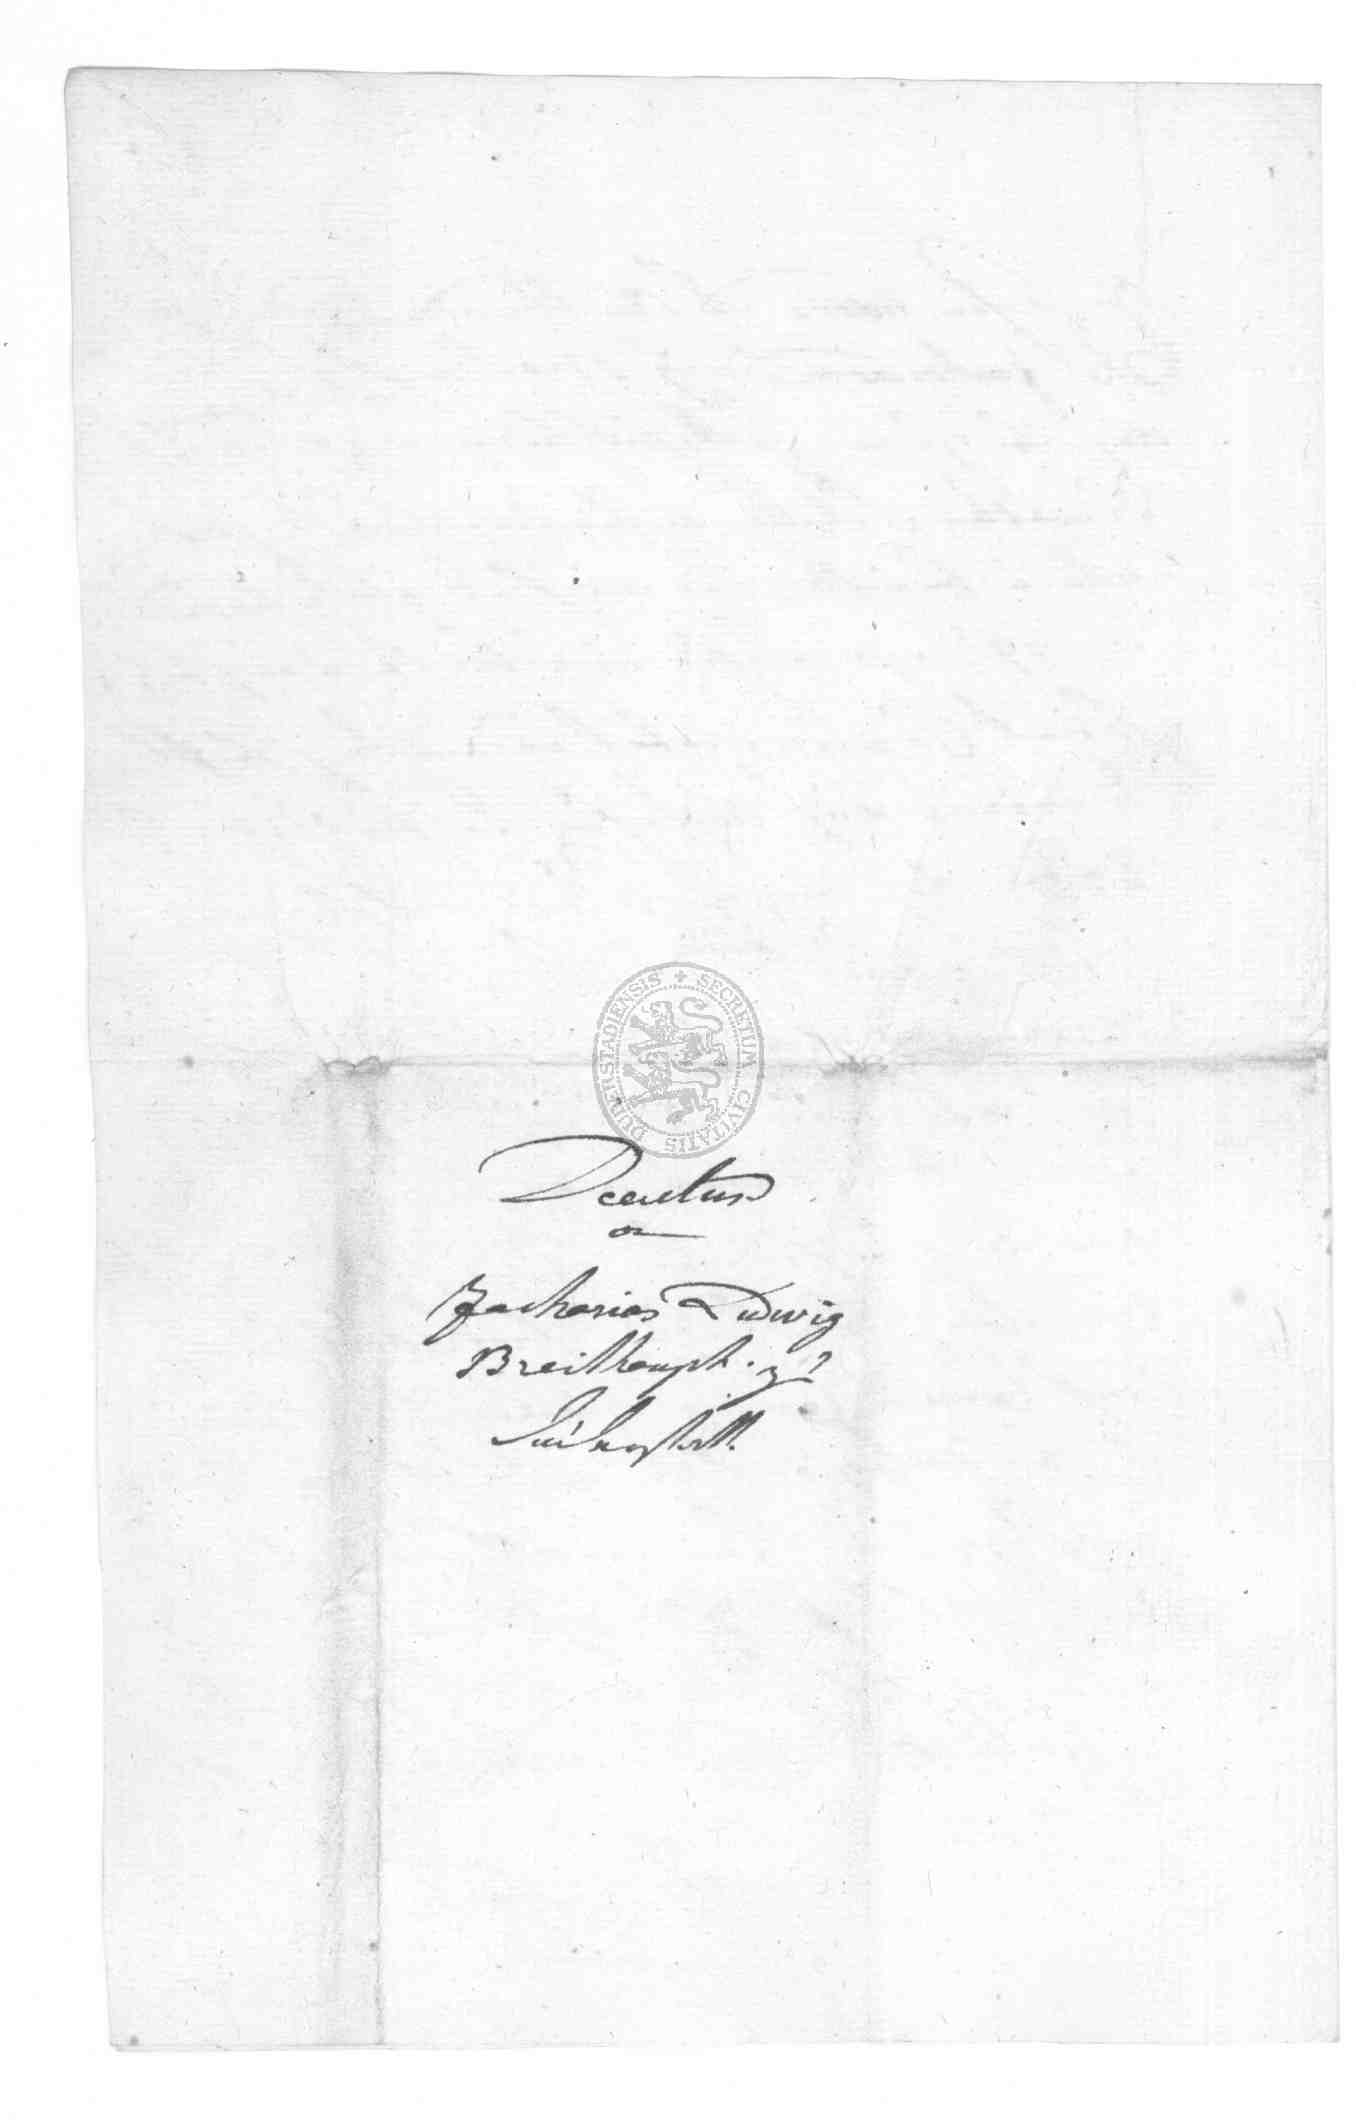 SECRETUM CIVITATIS DUDERSTADIENSIS
Decretum
Zacharias Ludwig
Breithaupt